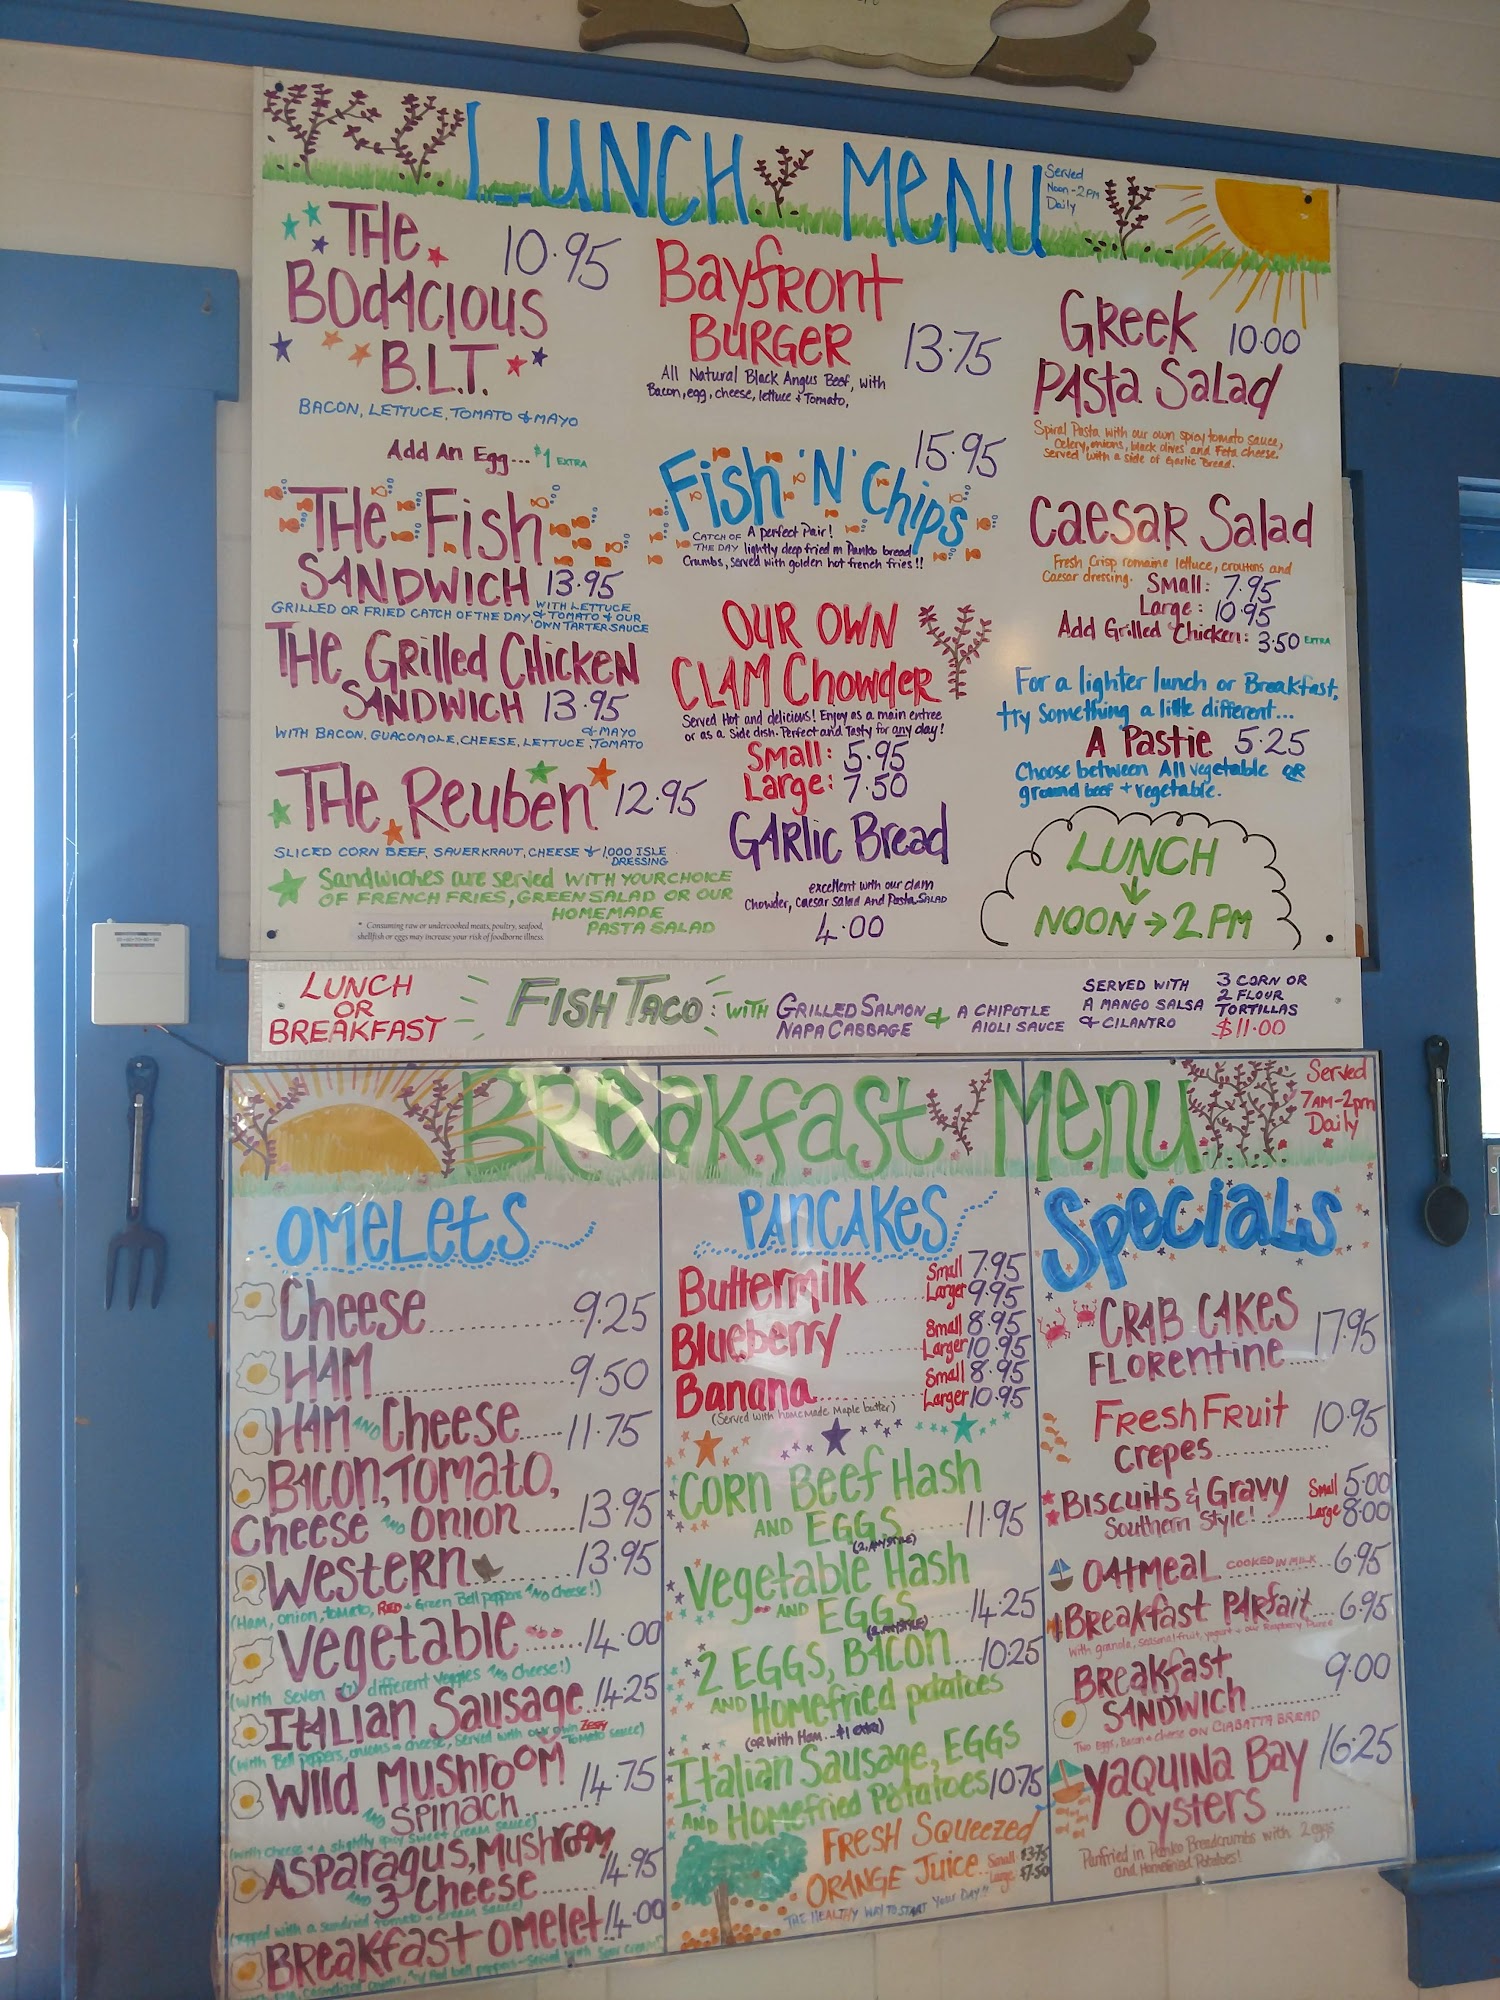 LUNCH MENU
Served
Noon-2PM
Daily
THE
BODACIOUS
B.L.T.
10.95
BACON, LETTUCE, TOMATO & MAYO
Add An Egg... $1 EXTRA
THE Fish
SANDWICH 13.95
GRILLED OR FRIED CATCH OF THE DAY, WITH LETTUCE
& TOMATO & OUR
OWN TARTER SAUCE
THE GRilled CHICKEN
SANDWICH 13.95
WITH BACON, GUACOMOLE, CHEESE, LETTUCE, TOMATO
& MAYO
THE Reuben 12.95
SLICED CORN BEEF, SAUERKRAUT, CHEESE & 1,000 ISLE
DRESSING
Sandwiches are served WITH YOUR CHOICE
OF FRENCH FRIES, GREEN SALAD OR OUR
HOMEMADE
PASTA SALAD
* Consuming raw or undercooked meats, poultry, seafood,
shellfish or eggs may increase your risk of foodborne illness.
Bayfront
BURGER 13.75
All Natural Black Angus Beef, with
Bacon, egg, cheese, lettuce + Tomato,
15.95
Fish 'N' Chips
A perfect Pair!
CATCH OF
THE DAY lightly deep fried in Panko bread
Crumbs, served with golden hot french fries!!
OUR OWN
CLAM Chowder
Served Hot and delicious! Enjoy as a main entree
or as a Side dish. Perfect and Tasty for any day!
Small: 5.95
Large: 7.50
GARlic Bread
excellent with our clam
Chowder, Caesar Salad And Pasta SALAD
4.00
GReek 10.00
PAsta Salad
Spiral Pasta with our own spicy tomato sauce,
Celery, onions, black olives and Feta cheese.
Served with a side of Garlic Bread.
CAESAR Salad
Fresh Crisp romaine lettuce, croutons and
Caesar dressing.
Small: 7.95
Large: 10.95
Add Grilled Chicken: 3.50 EXTRA
For a lighter lunch or Breakfast,
try Something a little different...
A Pastie 5.25
Choose between All vegetable OR
ground beef + vegetable.
LUNCH
NOON → 2 PM
LUNCH
OR
BREAKFAST
FISH TACO: WITH GRILLED SALMON
NAPA CABBAGE & A CHIPOTLE
AIOLI SAUCE
SERVED WITH
A MANGO SALSA
& CILANTRO
3 CORN OR
2 FLOUR
TORTILLAS
$11.00
BREAKfast Menu
Served
7AM-2pm
Daily
OMELETS
Cheese 9.25
HAM 9.50
HAM AND Cheese 11.75
BACON, TOMATO,
Cheese AND Onion 13.95
Western 13.95
(Ham, onion, tomato, RED + Green Bell peppers AND cheese!)
Vegetable 14.00
(with Seven (7) different Veggies AND Cheese!)
ITALIAN Sausage 14.25
(with Bell peppers, onions & cheese, served with our own Zesty
Tomato Sauce)
Wild MushROOM
AND SPINACH 14.75
(with cheese + a slightly spicy sweet cream sauce)
ASPARAGUS, MUSHROOM
AND 3 Cheese 14.95
(topped with a sundried tomato + cream sauce)
BREAKfast OMELET 14.00
PANCAKES
Buttermilk Small 7.95
Larger 9.95
Blueberry Small 8.95
Larger 10.95
Banana Small 8.95
Larger 10.95
(Served with homemade Maple butter)
CORN Beef Hash
AND EGGS 11.95
(2, ANY STYLE)
Vegetable Hash
AND EGGS 14.25
(2, ANY STYLE)
2 EGGS, BACON 10.25
AND Homefried potatoes
(OR with Ham... $1 extra)
Italian Sausage, EGGS
AND Homefried Potatoes 10.75
FRESH SQUEEZED
ORANGE JUICE Small $3.75
Large $7.50
THE HEALTHY WAY TO START YOUR DAY!!
Specials
CRAB CAKES
FLORENTINE 17.95
FRESH FRUIT
CREPES 10.95
BISCUITS & GRAVY Small 5.00
Southern Style! Large 8.00
OATMEAL COOKED IN MILK 6.95
BREAKfast PARfait 6.95
with granola, seasonal fruit, yogurt + our Raspberry Puree
BREAKfast
SANDWICH 9.00
Two Eggs, Bacon & cheese ON CIABATTA BREAD
YAQUINA BAY 16.25
OYSTERS
Panfried in Panko Breadcrumbs with 2 eggs
and Homefried Potatoes!